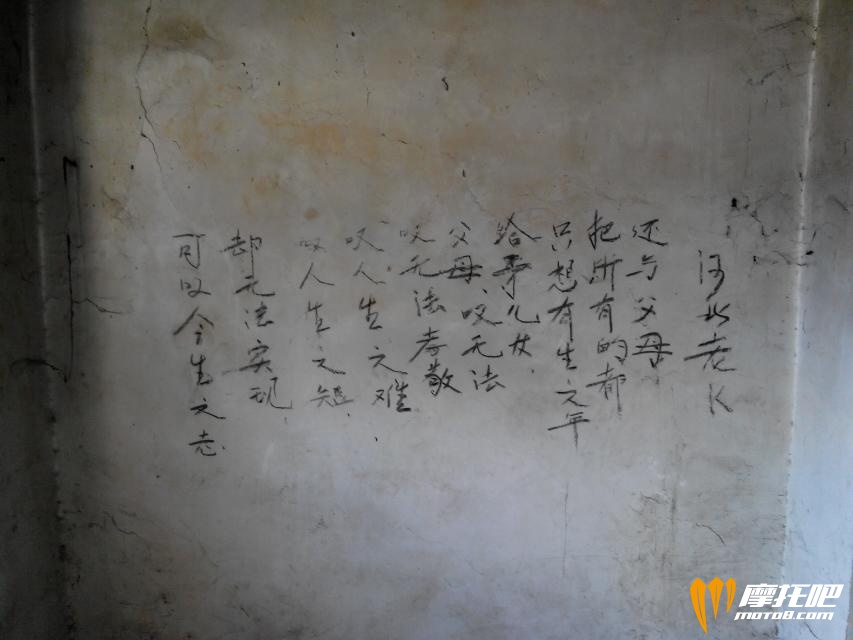 可叹今生之志.
却无法实现.
叹人生之短.
叹人生之难.
叹无法孝敬
父母、叹无法
给予儿女.
只想有生之年
把所有的都
还与父母
河北老K
摩托吧
moto8.com